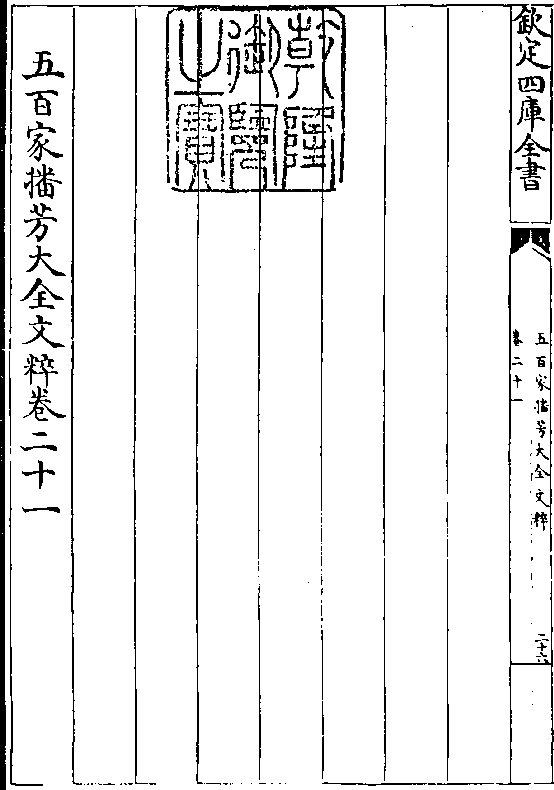 欽定四庫全書
五百家播芳大全文粹
卷二十一
二十六
乾隆
御覽
之寶
五百家播芳大全文粹卷二十一